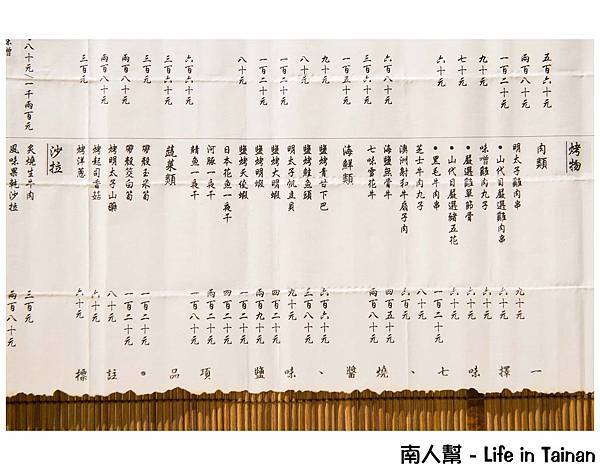 五百六十元
一百二十元
九十元
七十元
六十元
六百八十元
三百六十元
一百五十元
九十元
八十元
一百二十元
一百二十元
八十元
六百六十元
三百六十元
三百元
兩百八十元
兩百八十元
三百元
八十元/一千兩百元
烤物
肉類
明太子雞肉串 九十元
•山代目嚴選雞肉串 六十元
味噌雞肉丸子 六十元
•嚴選雞單節骨 七十元
•山代目嚴選豬五花 六十元
•黑毛牛肉串 一百二十元
芝士牛肉丸子 八十元
澳洲射和牛扇子肉 六百元
海鹽無骨牛 四百五十元
七味雪花牛 兩百四十元
海鮮類
鹽烤青甘下巴 六百六十元
鹽烤鮭魚頭 三百八十元
明太子帆立貝 九十元
鹽烤大明蝦 四百二十元
鹽烤明蝦 兩百九十元
鹽烤天使蝦 一百二十元
日本花魚一夜干 四百二十元
河豚一夜干 兩百二十元
鯖魚一夜干 一百八十元
蔬菜類
帶殼玉米筍 一百二十元
帶殼茭白筍 一百二十元
烤明太子山藥 八十元
烤起司香菇 六十元
烤洋蔥 六十元
沙拉
炙燒生牛肉 三百元
風味果乾沙拉 兩百八十元
標註•品項鹽味、醬燒、七味擇一
南人幫 - Life in Tainan